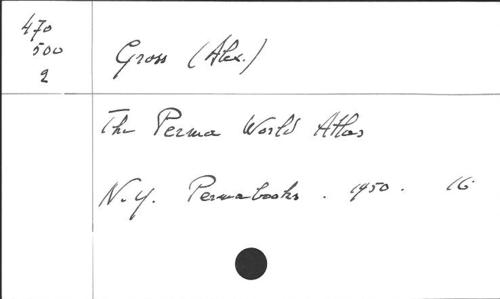 470
500
2
Gross (Alex.)
The Perma World Atlas
N.Y. Permabooks. 1950. 16